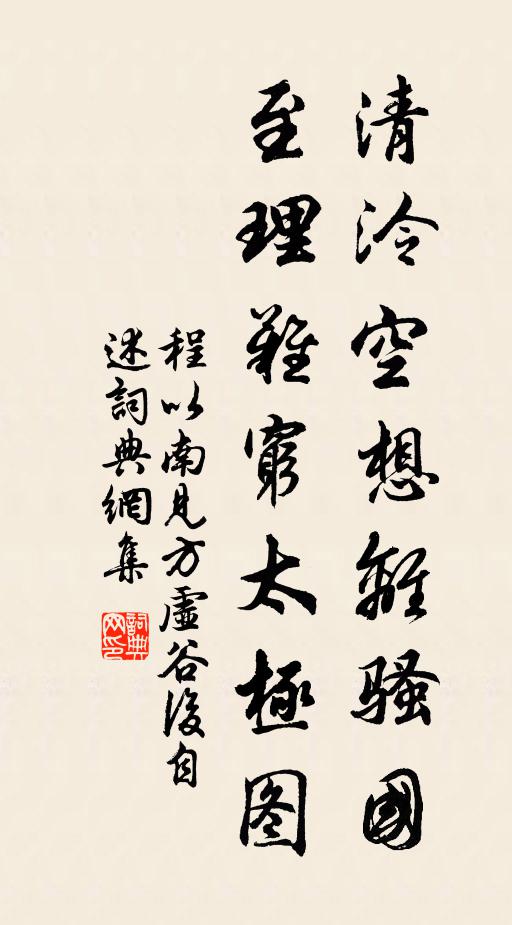 清泠空想離騷國
至理難窮太極图
程以南見方虛谷後自
述詞典網集
詞典网印